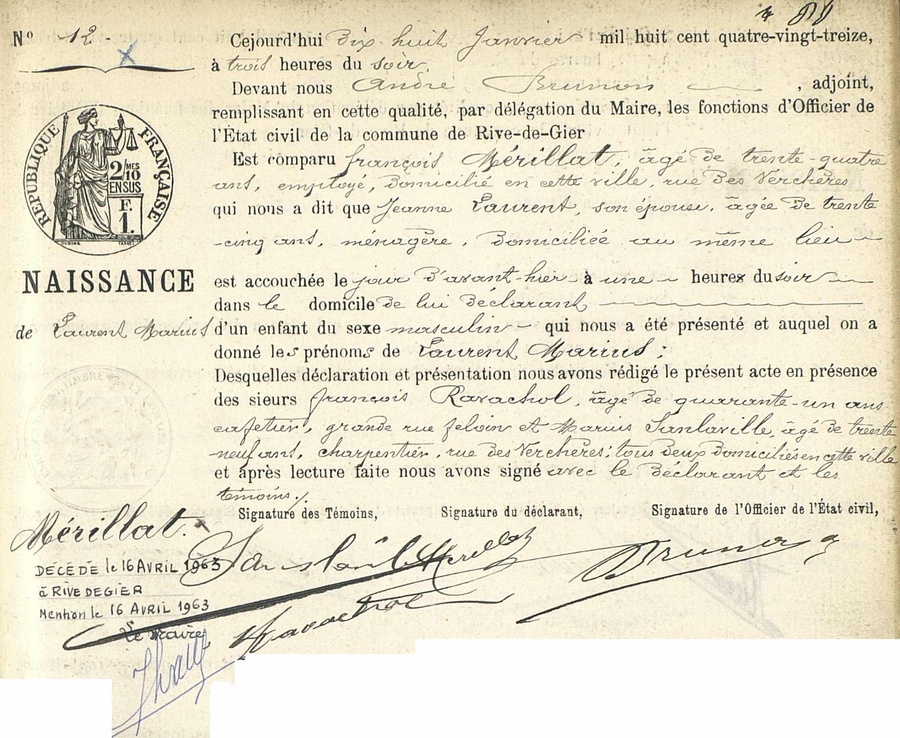 Nº 12
Cejourd'hui Dix-huit Janvier mil huit cent quatre-vingt-treize,
à trois heures du soir
Devant nous André Brunon, adjoint,
remplissant en cette qualité, par délégation du Maire, les fonctions d'Officier de
l'État civil de la commune de Rive-de-Gier
Est comparu françois Mérillat, âgé de trente-quatre
ans, employé, domicilié en cette ville, rue des Verchères
qui nous a dit que Jeanne Laurent, son épouse, âgée de trente
-cinq ans, ménagère, domiciliée au même lieu
RÉPUBLIQUE FRANÇAISE
2/10 MES
EN SUS
F.
1.
NAISSANCE
de Laurent Marius
est accouchée le jour d'avant-hier à une heures du soir
dans le domicile de lui déclarant,
d'un enfant du sexe masculin qui nous a été présenté et auquel on a
donné les prénoms de Laurent Marius;
Desquelles déclaration et présentation nous avons rédigé le présent acte en présence
des sieurs françois Ravachol, âgé de quarante-un ans
cafetier, grande rue feloin et Marius Sanlaville, âgé de trente
neuf ans, charpentier, rue des Verchères; tous deux domiciliés en cette ville
et après lecture faite nous avons signé avec le déclarant et les
témoins.
Signature des Témoins, Signature du déclarant, Signature de l'Officier de l'État civil,
Mérillat.
Sanlaville Merillat Brunon
DÉCÉDÉ le 16 AVRIL 1963
à RIVE DE GIER
Mention le 16 AVRIL 1963
Le Maire
Ravachol